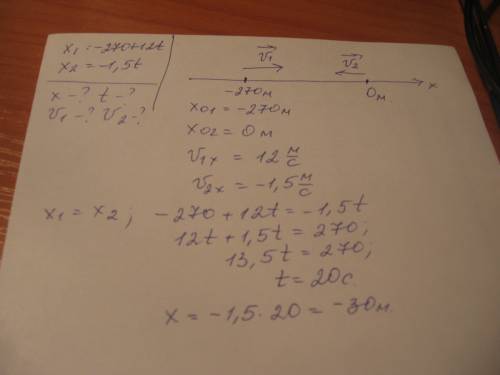 x₁ = -270+12t
x₂ = -1,5t
x - ? t - ?
v₁ - ? v₂ - ?
v₁ v₂
-270м 0м x
x01 = -270м
x02 = 0м
v₁ₓ = 12 м/с
v₂ₓ = -1,5 м/с
x₁ = x₂ ; -270 + 12t = -1,5t
12t + 1,5t = 270;
13,5t = 270;
t = 20с.
x = -1,5 · 20 = -30м.